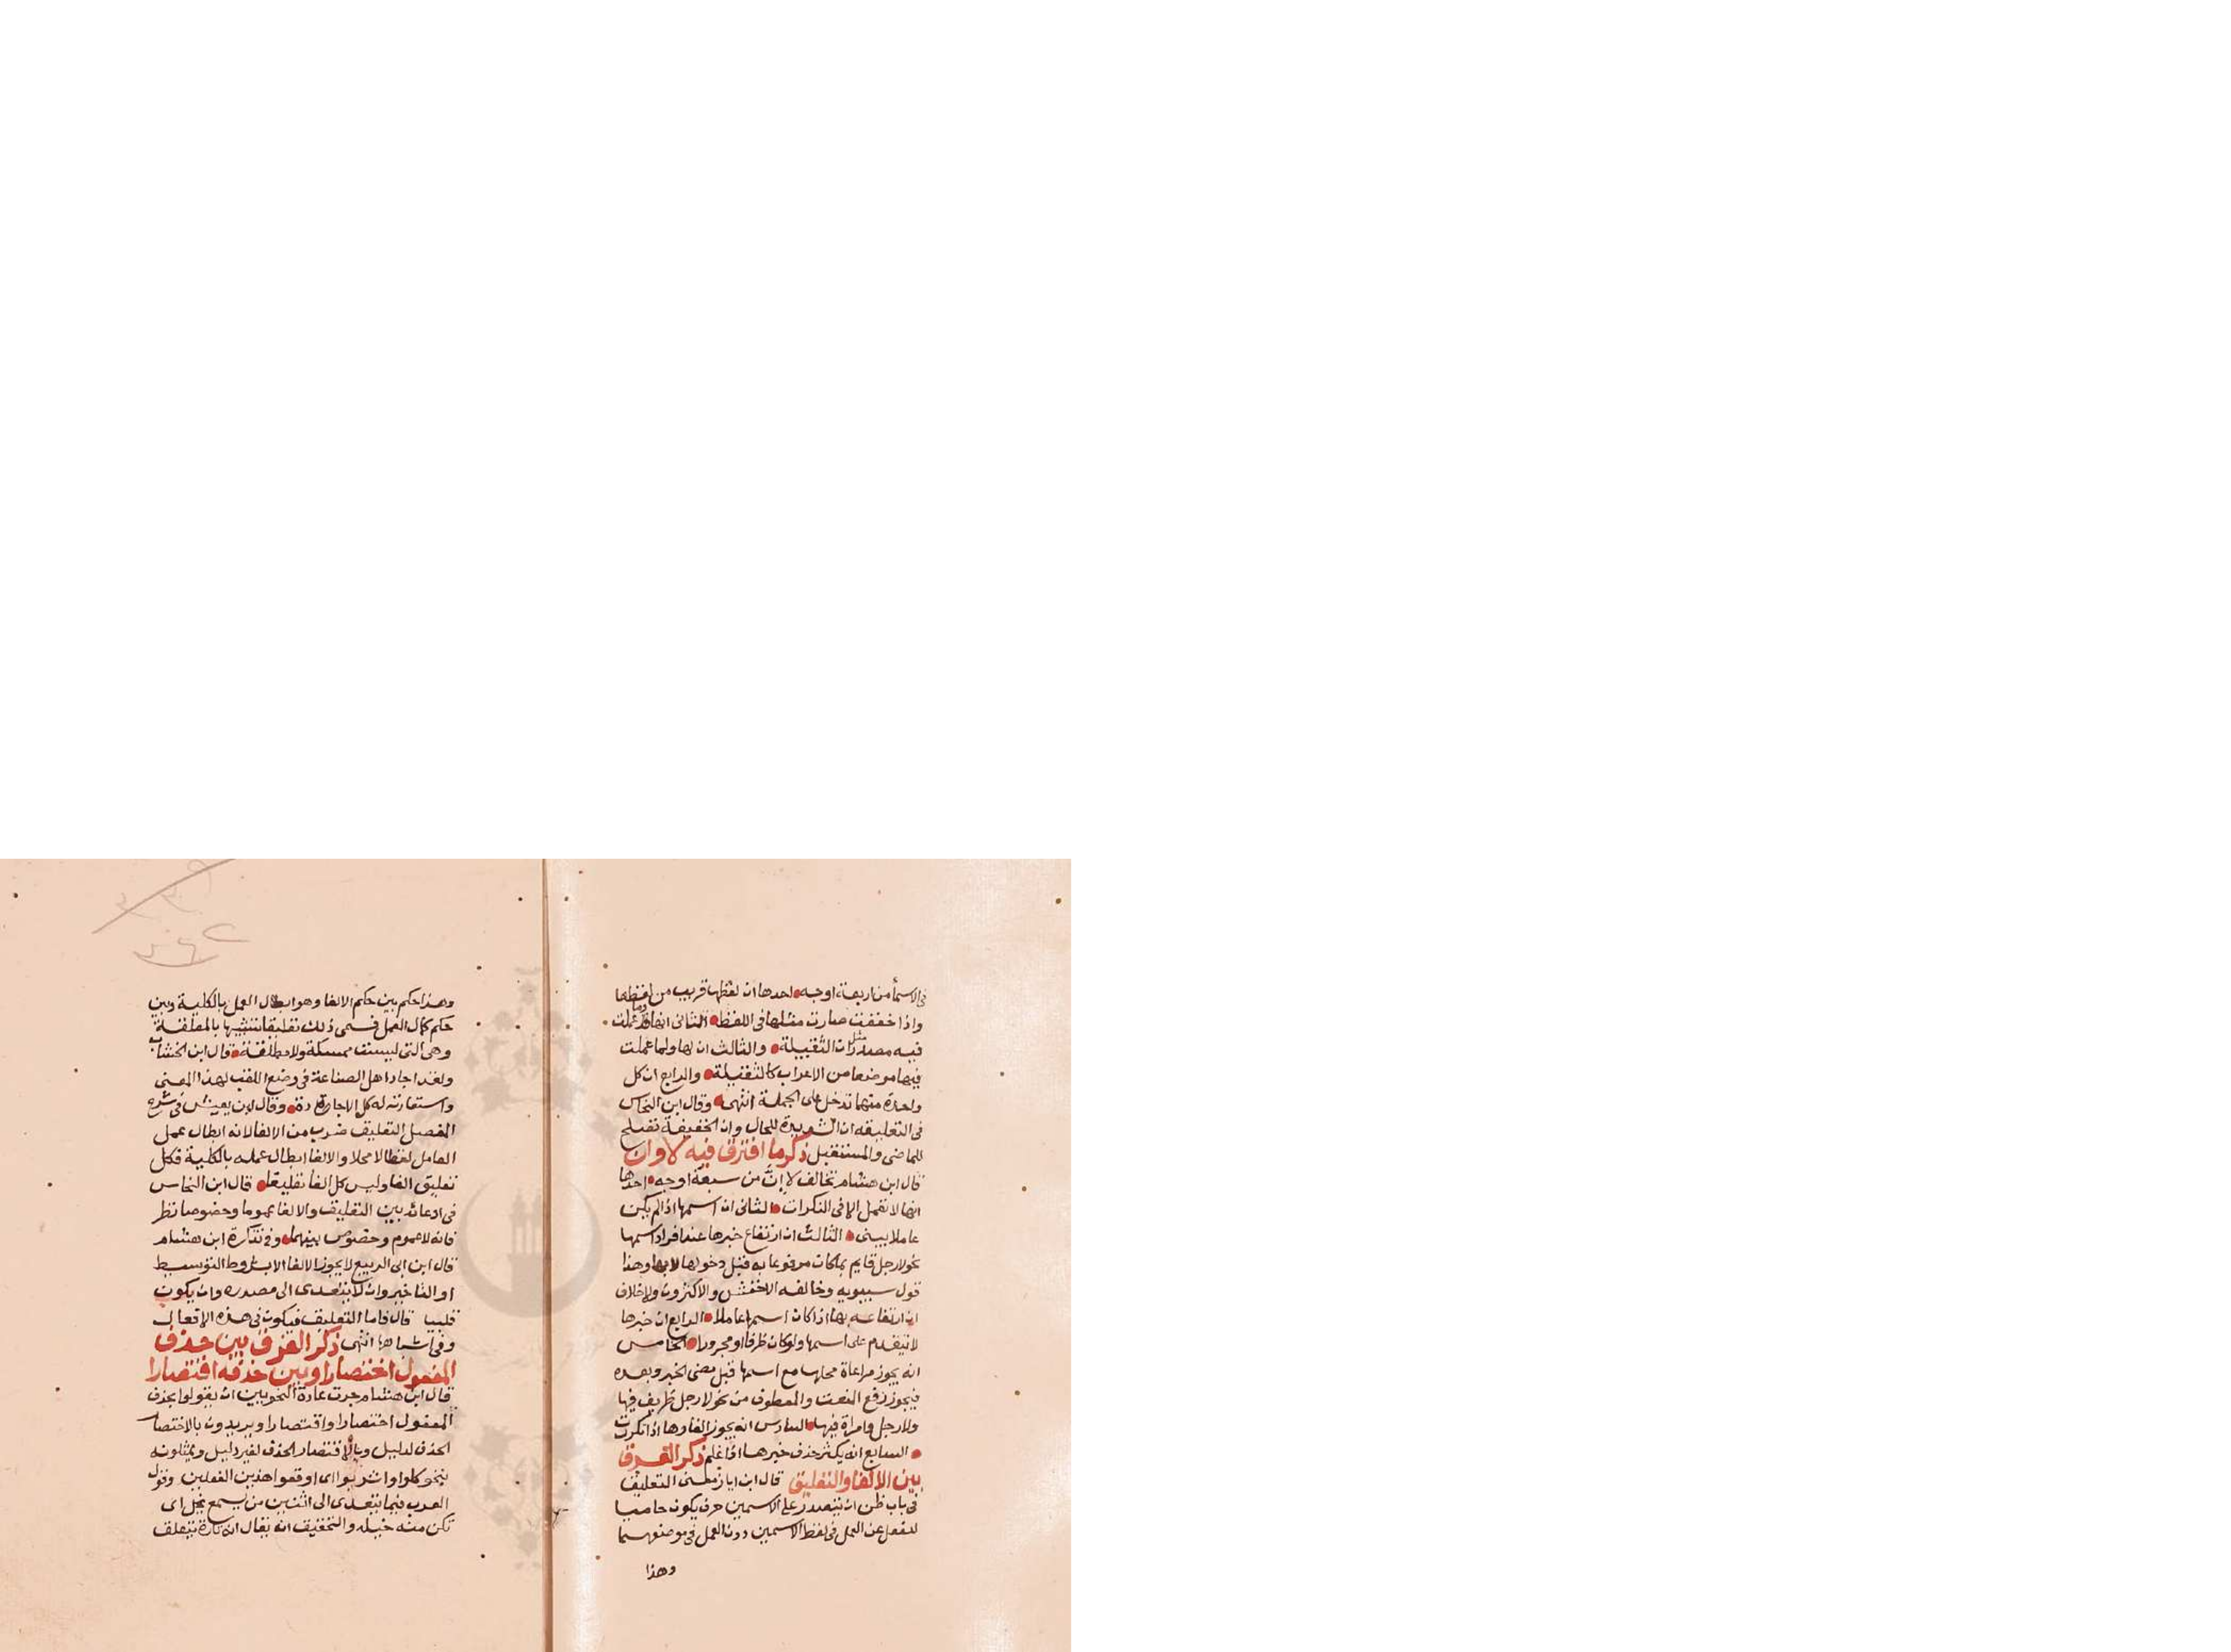 في الاسماء من اربعة اوجه احدها ان لفظها قريب من لفظها
واذا خففت صارت مثلها في اللفظ الثاني انها وما عملت
فيه مصدر مثل ان الثقيلة والثالث ان لها ولما عملت
فيها موضعا من الاعراب كالثقيلة والرابع ان كل
واحدة منهما تدخل على الجملة انتهى وقال ابن النحاس
في التعليقه ان الشديدة للحال وان الخفيفة تصلح
للماضي والمستقبل ذكر ما افترق فيه لا وان
قال ابن هشام تخالف لا إنّ من سبعة اوجه احدها
انها لا تعمل الا في النكرات الثاني ان اسمها اذا لم يكن
عاملا يبنى الثالث ان ارتفاع خبرها عند افراد اسمها
نحو لا رجل قايم بما كان مرفوعا به قبل دخولها لا بها وهذا
قول سيبويه وخالفه الاخفش والاكثرون ولا خلاف
ان ارتفاعه بها اذا كان اسمها عاملا الرابع ان خبرها
لا يتقدم على اسمها ولو كان ظرفا او مجرورا الخامس
انه يجوز مراعاة محلها مع اسمها قبل مضى الخبر وبعده
فيجوز رفع النعت والمعطوف من نحو لا رجل ظريف فيها
ولا رجل وامراة فيها السادس انه يجوز الغاوها اذا تكررت
السابع انه يكثر حذف خبرها اذا علم ذكر الفرق
بين الالغا والتعليق قال ابن اياز معنى التعليق
في باب ظن ان يتصدر على الاسمين حرف يكون حاميا
للفعل عن العمل في لفظ الاسمين دون العمل في موضعهما
وهذا
وهذا حكم بين حكم الالغا وهو ابطال العمل بالكلية وبين
حكم كمال العمل فسمى ذلك تعليقا تشبيها بالمعلقة
وهي التي ليست ممسكة ولا مطلقة قال ابن الخشاب
ولقد اجاد اهل الصناعة في وضع اللقب لهذا المعنى
واستعارته له كل الاجادة وقال ابن يعيش في شرح
المفصل التعليق ضرب من الالغا لانه ابطال عمل
العامل لفظا لا محلا والالغا ابطال عمله بالكلية فكل
تعليق الغا وليس كل الغا تعليقا قال ابن النحاس
في ادعائه بين التعليق والالغا عموما وخصوصا نظر
فانه لا عموم وخصوص بينهما وفي تذكرة ابن هشام
قال ابن ابي الربيع لا يجوز الالغا الا بشروط التوسيط
او التاخير وان لا يتعدى الى مصدره وان يكون
قلبيا قال فاما التعليق فيكون في هذه الافعال
وفي اشباهها انتهى ذكر الفرق بين حذف
المفعول اختصارا وبين حذفه اقتصارا
قال ابن هشام جرت عادة النحويين ان يقولوا بحذف
المفعول اختصارا واقتصارا ويريدون بالاختصار
الحذف لدليل وبالاقتصار الحذف لغير دليل ويمثلونه
بنحو كلوا واشربوا اى اوقعوا هذين الفعلين وقول
العرب فيما يتعدى الى اثنين من يسمع يخل اى
تكن منه خيله والتحقيق انه يقال انه تارة يتعلق